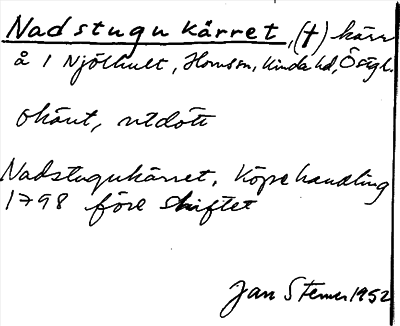 Nadstugukärret, (†) kärr
å 1 Njölhult, Horns sn, Kinda hd, Östgl.
okänt, utdött
Nadstugukärret, Köpehandling
1798 före skiftet
Jan Sterner 1952